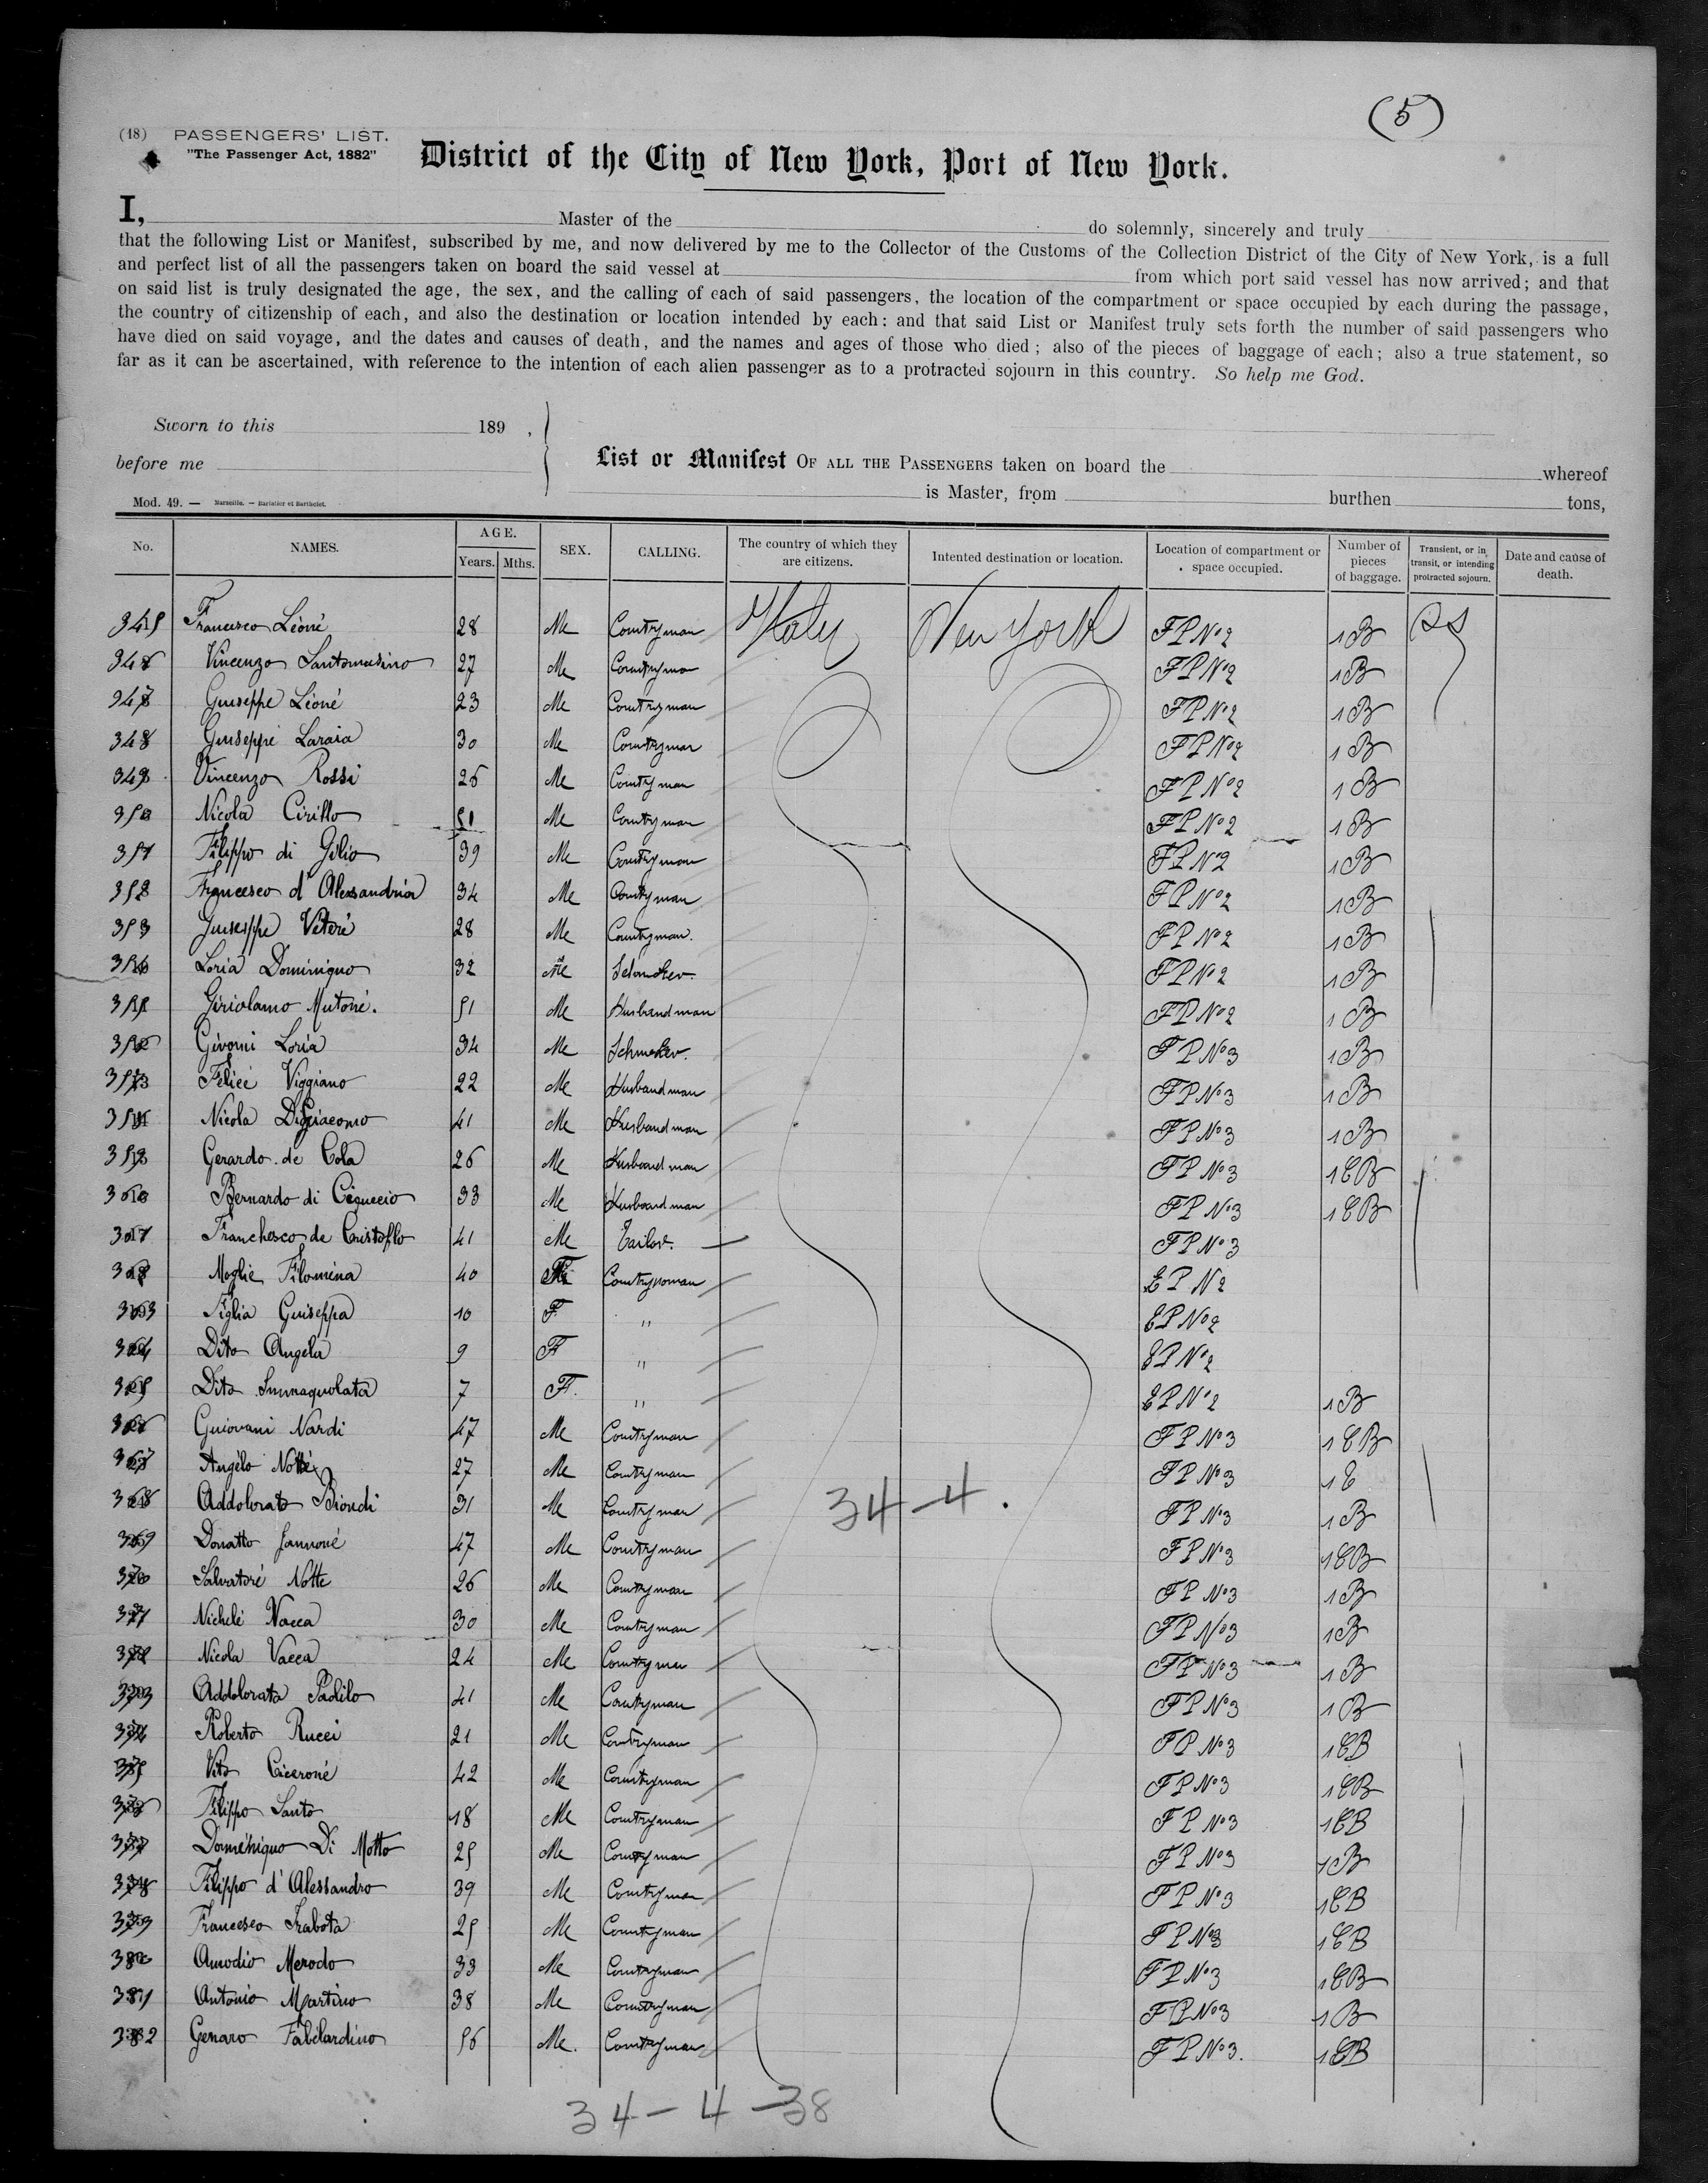 (5)
(18) PASSENGERS' LIST.
"The Passenger Act, 1882"
District of the City of New York, Port of New York.
I, Master of the do solemnly, sincerely and truly
that the following List or Manifest, subscribed by me, and now delivered by me to the Collector of the Customs of the Collection District of the City of New York, is a full
and perfect list of all the passengers taken on board the said vessel at from which port said vessel has now arrived; and that
on said list is truly designated the age, the sex, and the calling of each of said passengers, the location of the compartment or space occupied by each during the passage,
the country of citizenship of each, and also the destination or location intended by each: and that said List or Manifest truly sets forth the number of said passengers who
have died on said voyage, and the dates and causes of death, and the names and ages of those who died; also of the pieces of baggage of each; also a true statement, so
far as it can be ascertained, with reference to the intention of each alien passenger as to a protracted sojourn in this country. So help me God.
Sworn to this 189 ,
before me
List or Manifest OF ALL THE PASSENGERS taken on board the whereof
is Master, from burthen tons,
Mod. 49. — Marseille. — Barlatier et Barthelet.
No. NAMES. AGE. Years. Mths. SEX. CALLING. The country of which they are citizens. Intented destination or location. Location of compartment or space occupied. Number of pieces of baggage. Transient, or in transit, or intending protracted sojourn. Date and cause of death.
345 Francesco Léoné 28 Me Countryman Italy New York FP No 2 1 B
346 Vincenzo Santomasino 27 Me Countryman FP No 2 1 B
347 Guiseppe Léoné 23 Me Countryman FP No 2 1 B
348 Guiseppé Laraia 30 Me Countryman FP No 2 1 B
349 Vincenzo Rossi 26 Me Countryman FP No 2 1 B
350 Nicola Cirillo 51 Me Countryman FP No 2 1 B
351 Filippo di Gilio 39 Me Countryman FP No 2 1 B
352 Francesco d'Alessandria 34 Me Countryman FP No 2 1 B
353 Guiseppe Vétéré 28 Me Countryman. FP No 2 1 B
354 Loria Dominiquo 32 Me FP No 2 1 B
355 Giriolamo Mutoné. 51 Me Husbandman FP No 2 1 B
356 Givorni Loria 34 Me FP No 3 1 B
357 Félicé Viggiano 22 Me Husbandman FP No 3 1 B
358 Nicola DiGiacomo 41 Me Husbandman FP No 3 1 B
359 Gerardo de Cola 26 Me Husbandman FP No 3 1 CB
360 Bernardo di 33 Me Husbandman FP No 3 1 CB
361 Franchesco de Cristoflo 41 Me Tailor. FP No 3
362 Moglie Filoména 40 Countrywoman EP No 2
363 Figlia Guiseppa 10 F " EP No 2
364 Dito Angela 9 F " EP No 2
365 Dito Immaquolata 7 F. " EP No 2 1 B
366 Guiovani Nardi 47 Me Countryman FP No 3 1 CB
367 Angélo Notte 27 Me Countryman FP No 3 1 C
368 Addolorato Biondi 31 Me Countryman 34-4. FP No 3 1 B
369 Donatto Jannoné 47 Me Countryman FP No 3 1 CB
370 Salvatoré Notte 26 Me Countryman FP No 3 1 B
371 Nichelé Vacca 30 Me Countryman FP No 3 1 B
372 Nicola Vacca 24 Me Countryman FP No 3 1 B
373 Addolorata Paolilo 41 Me Countryman FP No 3 1 B
374 Roberto Rucci 21 Me Countryman FP No 3 1 CB
375 Vito Ciceroné 42 Me Countryman FP No 3 1 CB
376 Filippo Santo 18 Me Countryman FP No 3 1 CB
377 Doméniquo Di Motto 25 Me Countryman FP No 3 1 B
378 Filippo d'Alessandro 39 Me Countryman FP No 3 1 CB
379 Francesco Trabota 25 Me Countryman FP No 3 1 CB
380 Amodio Merodo 33 Me Countryman FP No 3 1 CB
381 Antonio Martino 38 Me Countryman FP No 3 1 B
382 Genaro Fabilardino 56 Me. Countryman FP No 3. 1 CB
34-4-38